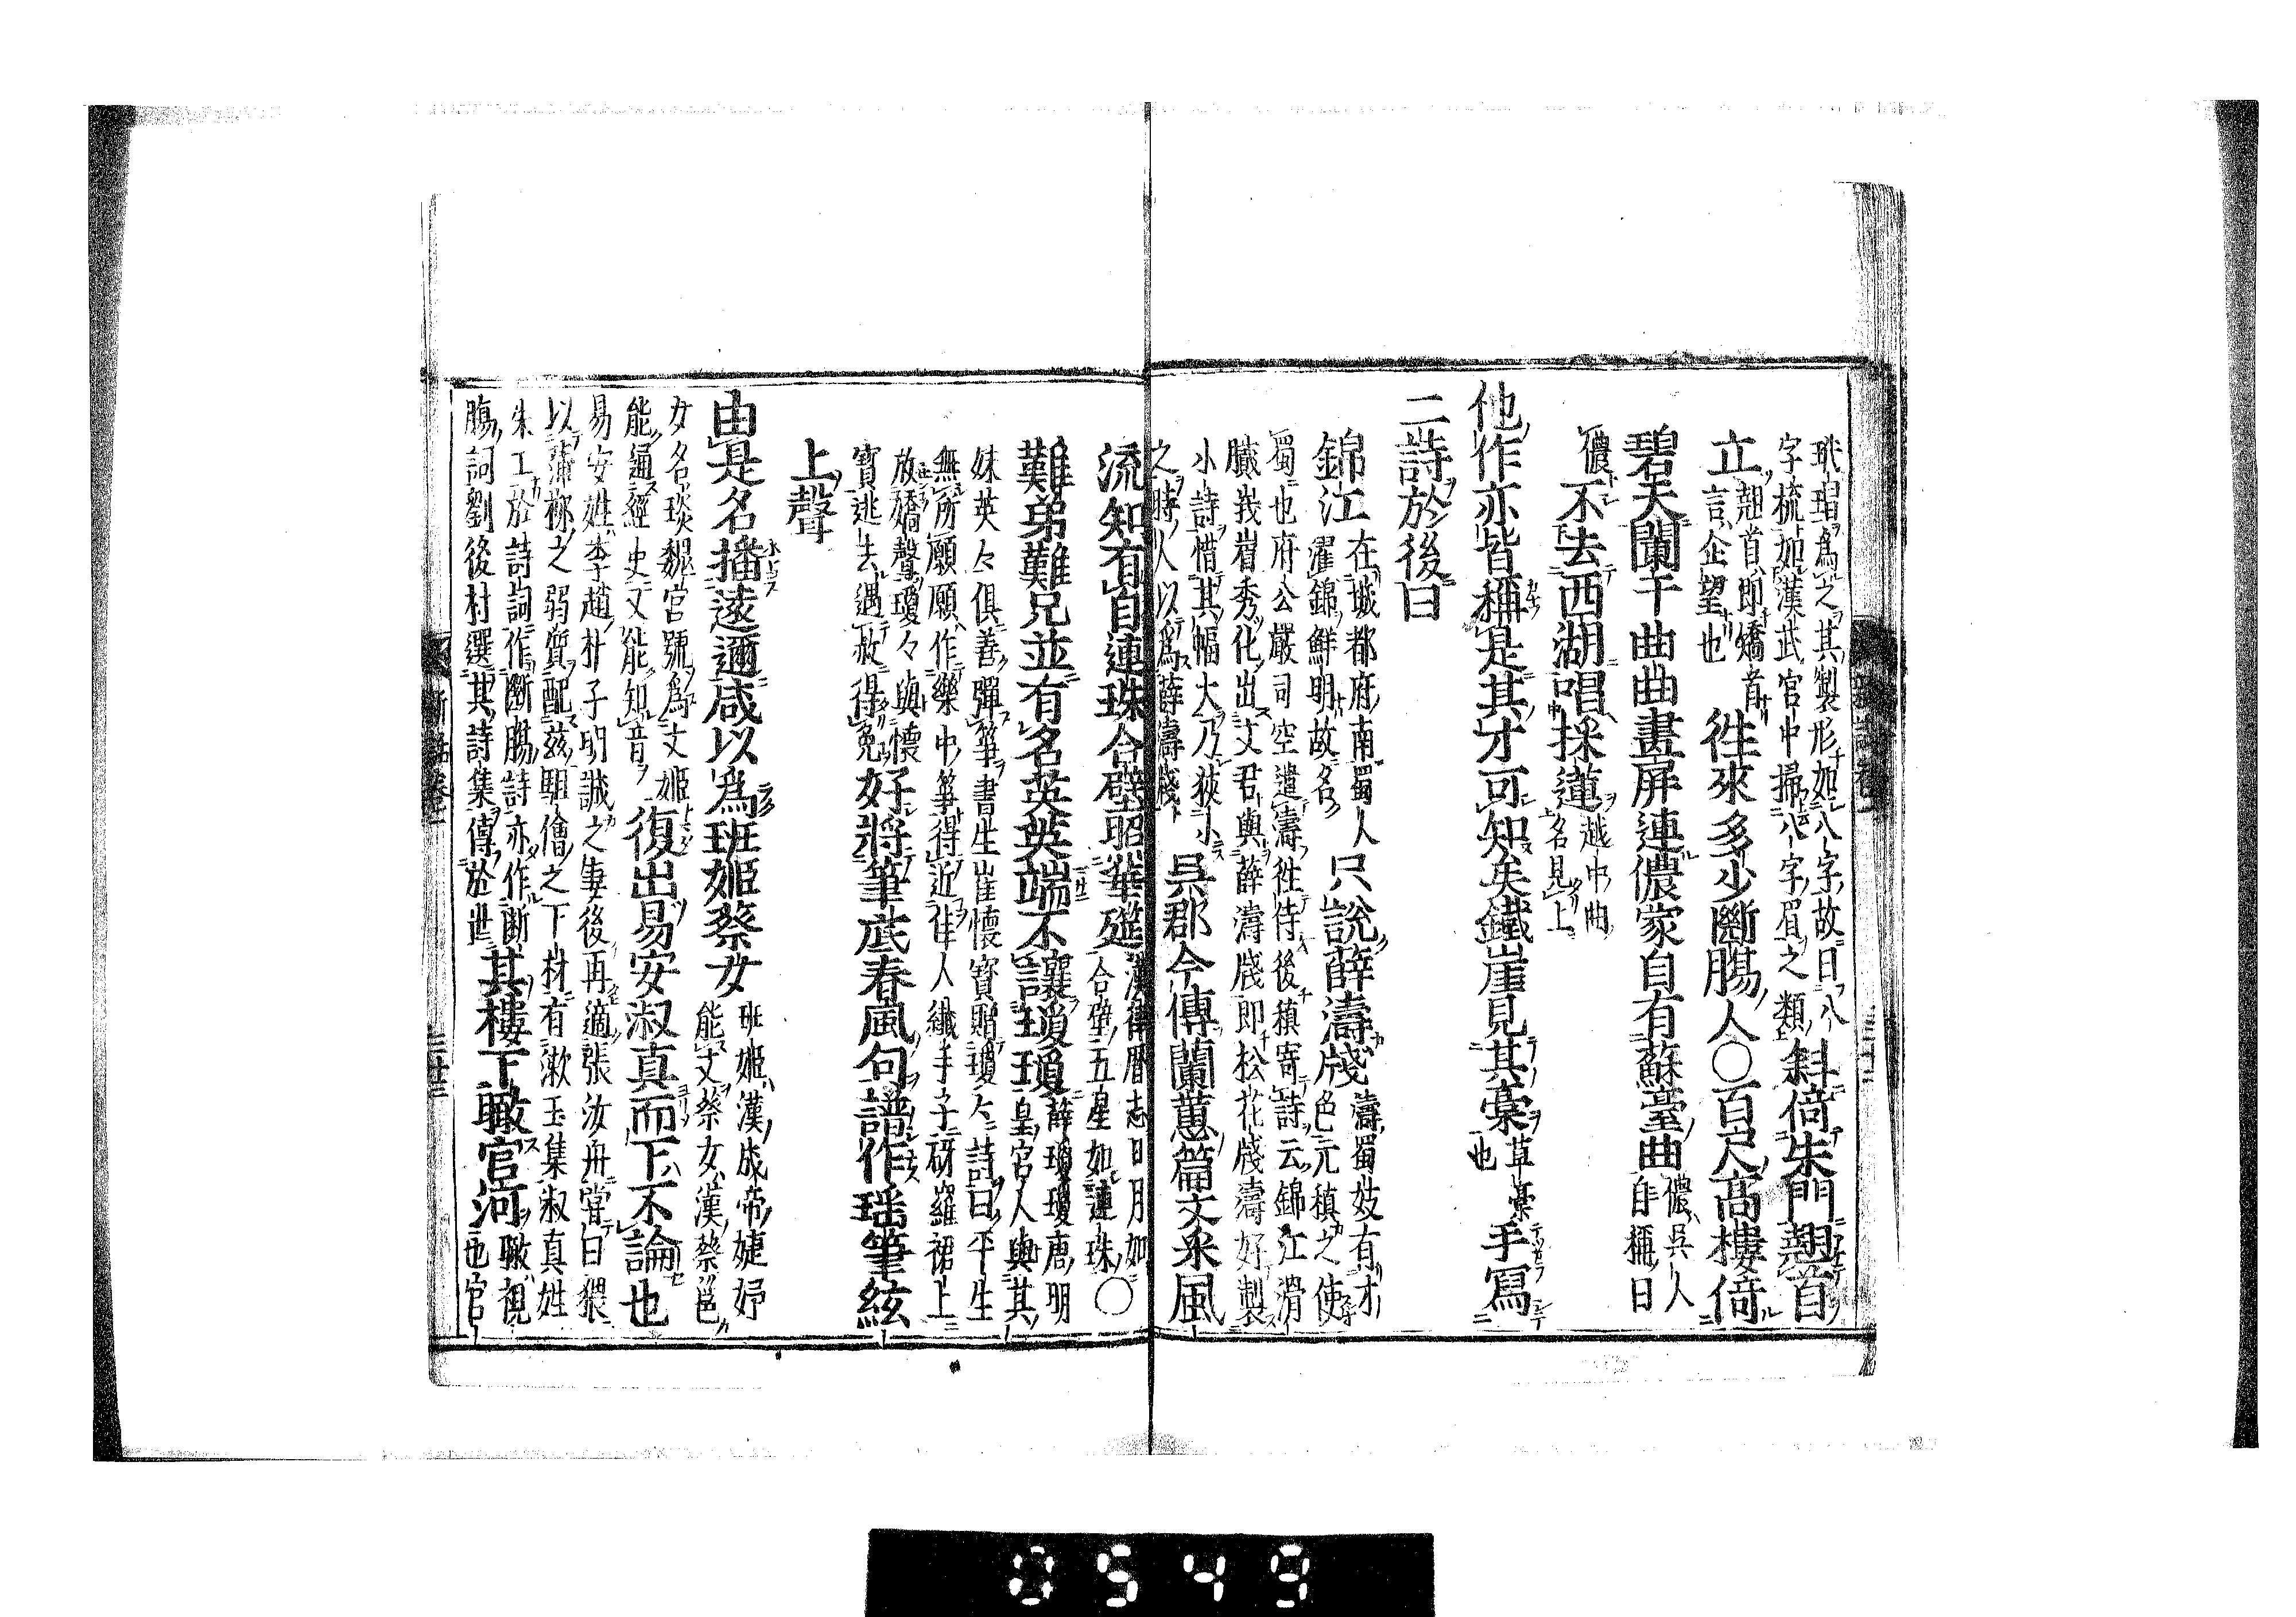 玳瑁爲之其製形如八字故曰八
字梳如漢武宮中掃八字眉之類斜倚朱門翹首
立翹首即矯首言企望也徃來多少斷腸人〇百尺高樓倚
碧天闌干曲曲畫屏連儂家自有蘇臺曲儂吳人自稱曰
儂不去西湖唱採蓮越中曲名見上
他作亦皆稱是其才可知矣鐵崖見其稾草稾也手寫
二詩於後曰
錦江在城都府南蜀人濯錦鮮明故名只說薛濤牋濤蜀妓有才色元稹之使
蜀也府公嚴司空遣濤徃侍後稹寄詩云錦江滑
膩峩嵋秀化出文君與薛濤牋即松花牋濤好製
小詩惜其幅大乃狹小之時人以爲薛濤牋吳郡今傳蘭蕙篇文采風
流知有自連珠合璧照華筵漢律曆志日月如合璧五星如連珠〇
難弟難兄並有名英英端不讓瓊瓊薛瓊瓊唐明皇宮人與其
妹英々俱善彈箏書生崔懷寶贈瓊々詩曰平生
無所願願作樂中箏得近佳人纖手子砑羅裙上
放嬌聲瓊々與懷寶逃去遇赦得免好將筆底春風句譜作瑤箏絃
上聲
由是名播遠邇咸以爲班姬蔡女班姬漢成帝婕妤能文蔡女漢蔡邕
女名琰魏宮號爲文姬能通經史又能知音復出易安淑真而下不論也
易安姓李趙朴子明誠之妻後再適張汝舟嘗曰猥
以蒲柳之弱質配玆駔儈之下材有漱玉集淑真姓
朱工於詩詞作斷膓詩亦作斷
膓詞劉後村選其詩集傳於世其樓下瞰官河瞰視也官